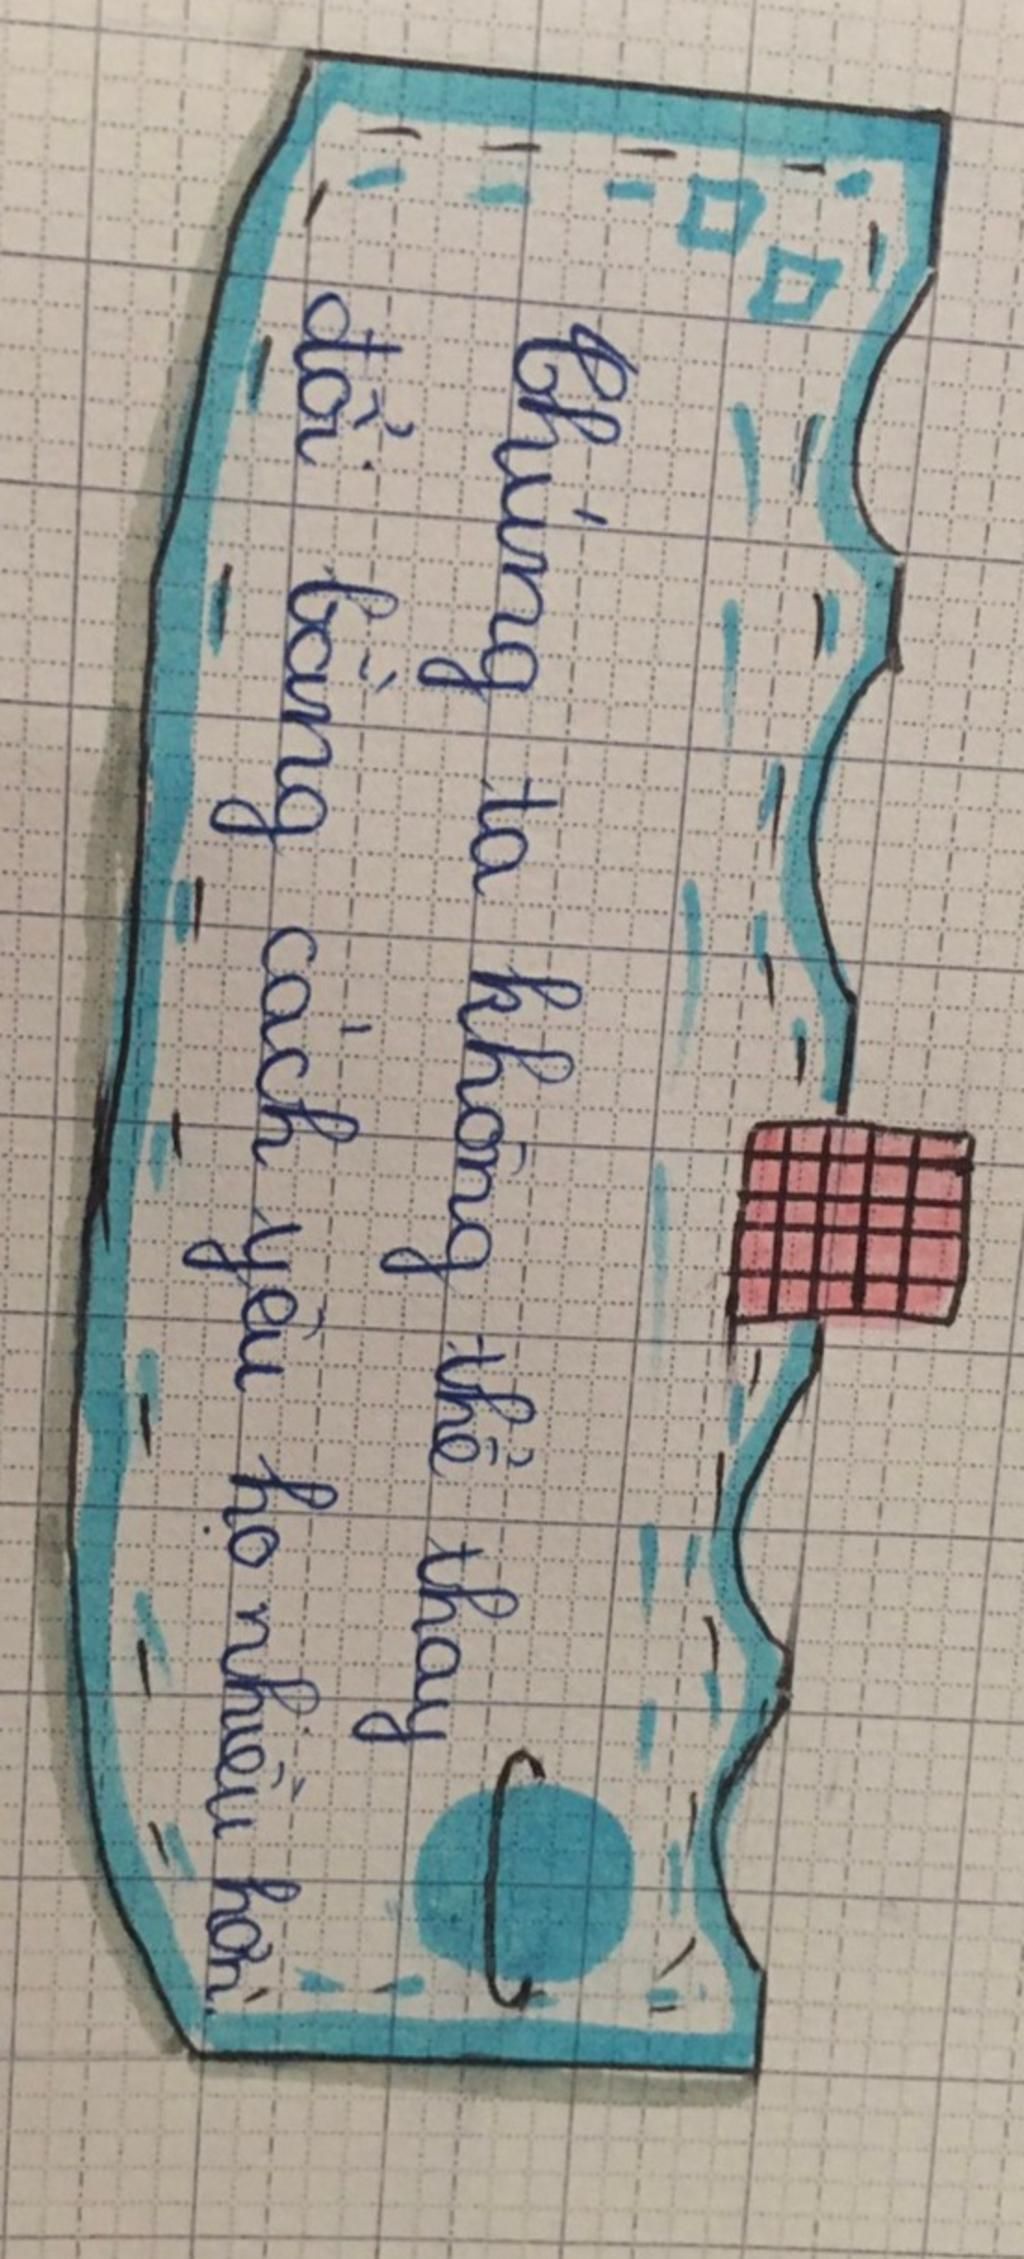 Chúng ta không thể thay
đổi bằng cách yêu họ nhiều hơn.